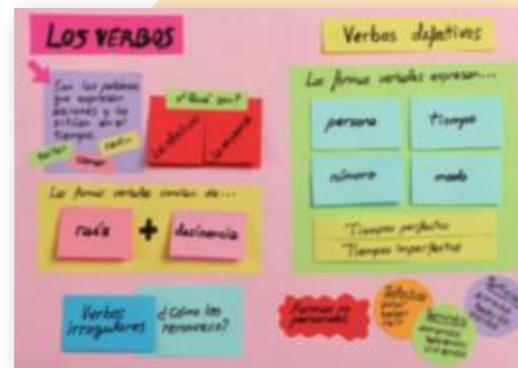 LOS VERBOS
Son las palabras
que expresan
acciones y las
sitúan en el
tiempo.
¿Qué son?
Las formas verbales constan de...
raíz + desinencia
Verbos
irregulares
¿Cómo los
reconozco?
Verbos defectivos
Las formas verbales expresan...
persona
tiempo
número
modo
Tiempos perfectos
Tiempos imperfectos
Formas no
personales
Infinitivo
Gerundio